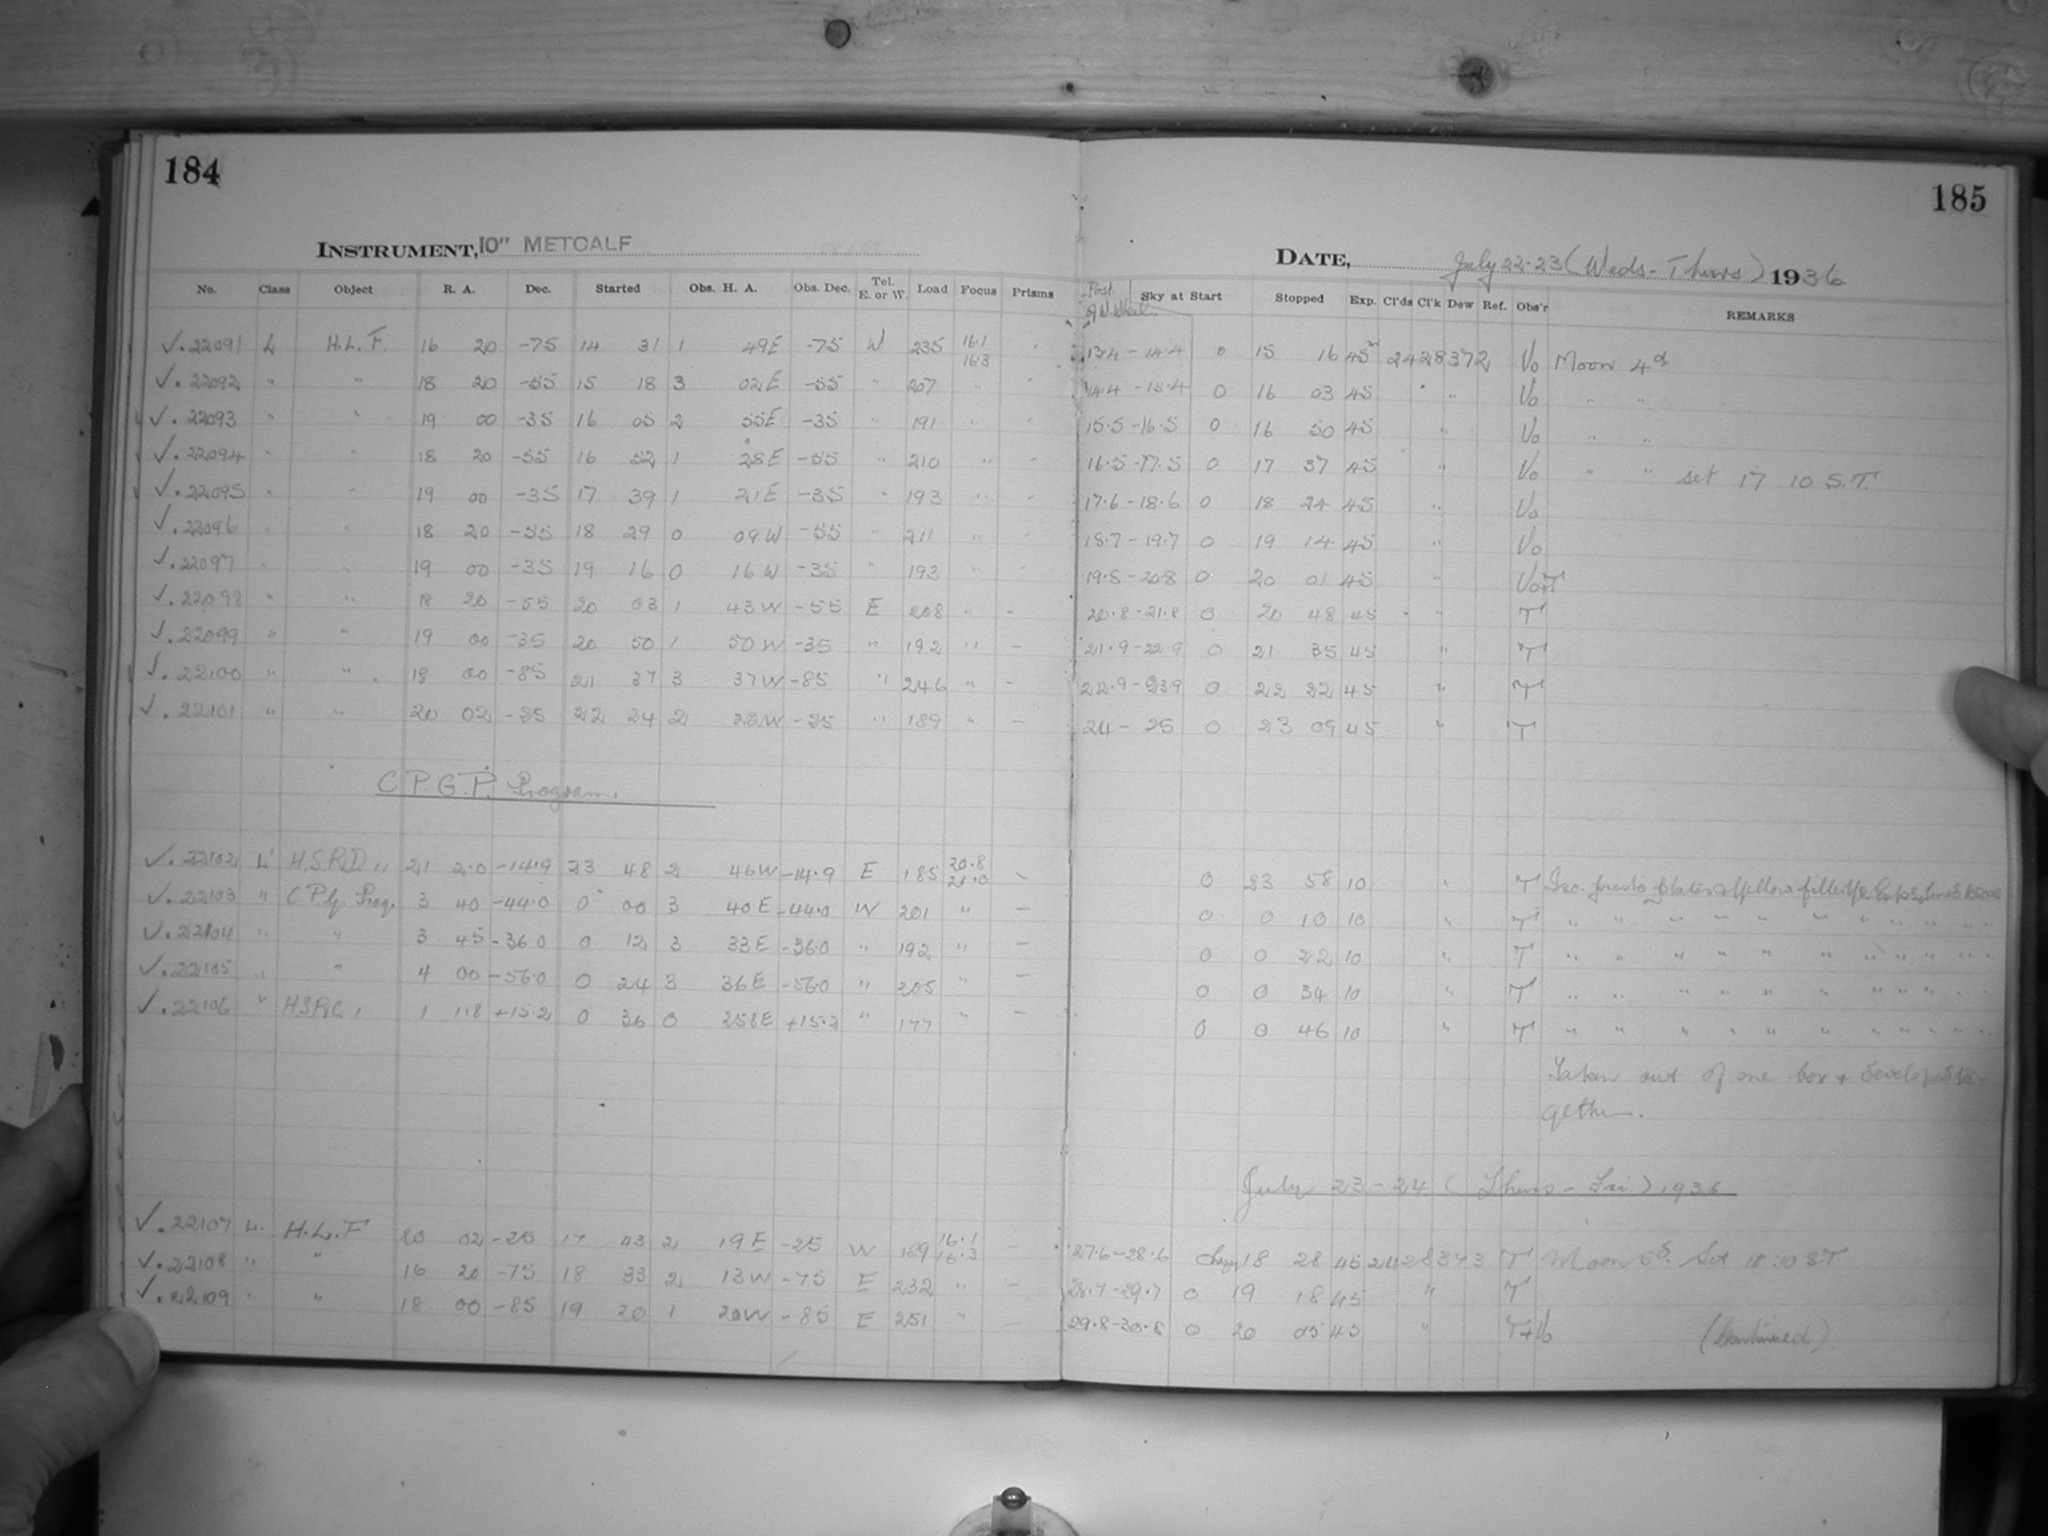 184
185
INSTRUMENT, 10" METCALF
DATE, July 22-23 (Weds - Thurs) 1936
No. Class Object R. A. Dec. Started Obs. H. A. Obs. Dec. Tel. E. or W. Load Focus Prisms Sky at Start Stopped Exp. Cl'ds Cl'k Dew Ref. Obs'r REMARKS
√. 22091 L H.L.F. 16 20 -75 14 31 1 49E -75 W 235 16.1 16.3 13.4 - 14.4 0 15 16 45m 2428372 Vo Moon 4d
√. 22092 " " 18 20 -55 15 18 3 02E -55 " 207 " 14.4 - 15.4 0 16 03 45 " Vo " "
√. 22093 " " 19 00 -35 16 05 2 55E -35 " 191 " 15.5 - 16.5 0 16 50 45 " Vo " "
√. 22094 " " 18 20 -55 16 52 1 28E -55 " 210 " 16.5 - 17.5 0 17 37 45 " Vo " " set 17 10 S.T.
√. 22095 " " 19 00 -35 17 39 1 21E -35 " 193 " 17.6 - 18.6 0 18 24 45 " Vo
√. 22096 " " 18 20 -55 18 29 0 09W -55 " 211 " 18.7 - 19.7 0 19 14 45 " Vo
√. 22097 " " 19 00 -35 19 16 0 16W -35 " 193 " 19.8 - 20.8 0 20 01 45 " Vo+T
√. 22098 " " 18 20 -55 20 03 1 43W -55 E 208 " - 20.8 - 21.8 0 20 48 45 " T
√. 22099 " " 19 00 -35 20 50 1 50W -35 " 192 " - 21.9 - 22.9 0 21 35 45 " T
√. 22100 " " 18 00 -85 21 37 3 37W -85 " 246 " - 22.9 - 23.9 0 22 22 45 " T
√. 22101 " " 20 02 -25 22 24 2 22W -25 " 189 " - 24 - 25 0 23 09 45 " T
C.P.G.P. Program
√. 22102 L' 21 2.0 -14.9 23 48 2 46W -14.9 E 185 20.8 21.0 - 0 23 58 10 " T
√. 22103 " C.P.G. Prog. 3 40 -44.0 0 00 3 40E -44.0 W 201 " - 0 0 10 10 " T
√. 22104 " " 3 45 -36.0 0 12 3 33E -36.0 " 192 " - 0 0 22 10 " T
√. 22105 " " 4 00 -56.0 0 24 3 36E -56.0 " 205 " - 0 0 34 10 " T
√. 22106 " 1 11.8 +15.2 0 36 0 +15.2 " 177 " - 0 0 46 10 " T
Taken out of one box + developed to-
gether.
July 23 - 24 (Thurs - Fri.) 1936
√. 22107 L. H.L.F 20 02 -25 17 43 2 19E -25 W 189 16.1 16.3 - 27.6 - 28.6 18 28 45 2428373 T Moon 5d. Set 18:10 ST
√. 22108 " " 16 20 -75 18 33 2 13W -75 E 232 " - 28.7 - 29.7 0 19 18 45 " T
√. 22109 " " 18 00 -85 19 20 1 20W -85 E 251 " 29.8 - 30.8 0 20 05 45 " T+Vo (Continued)